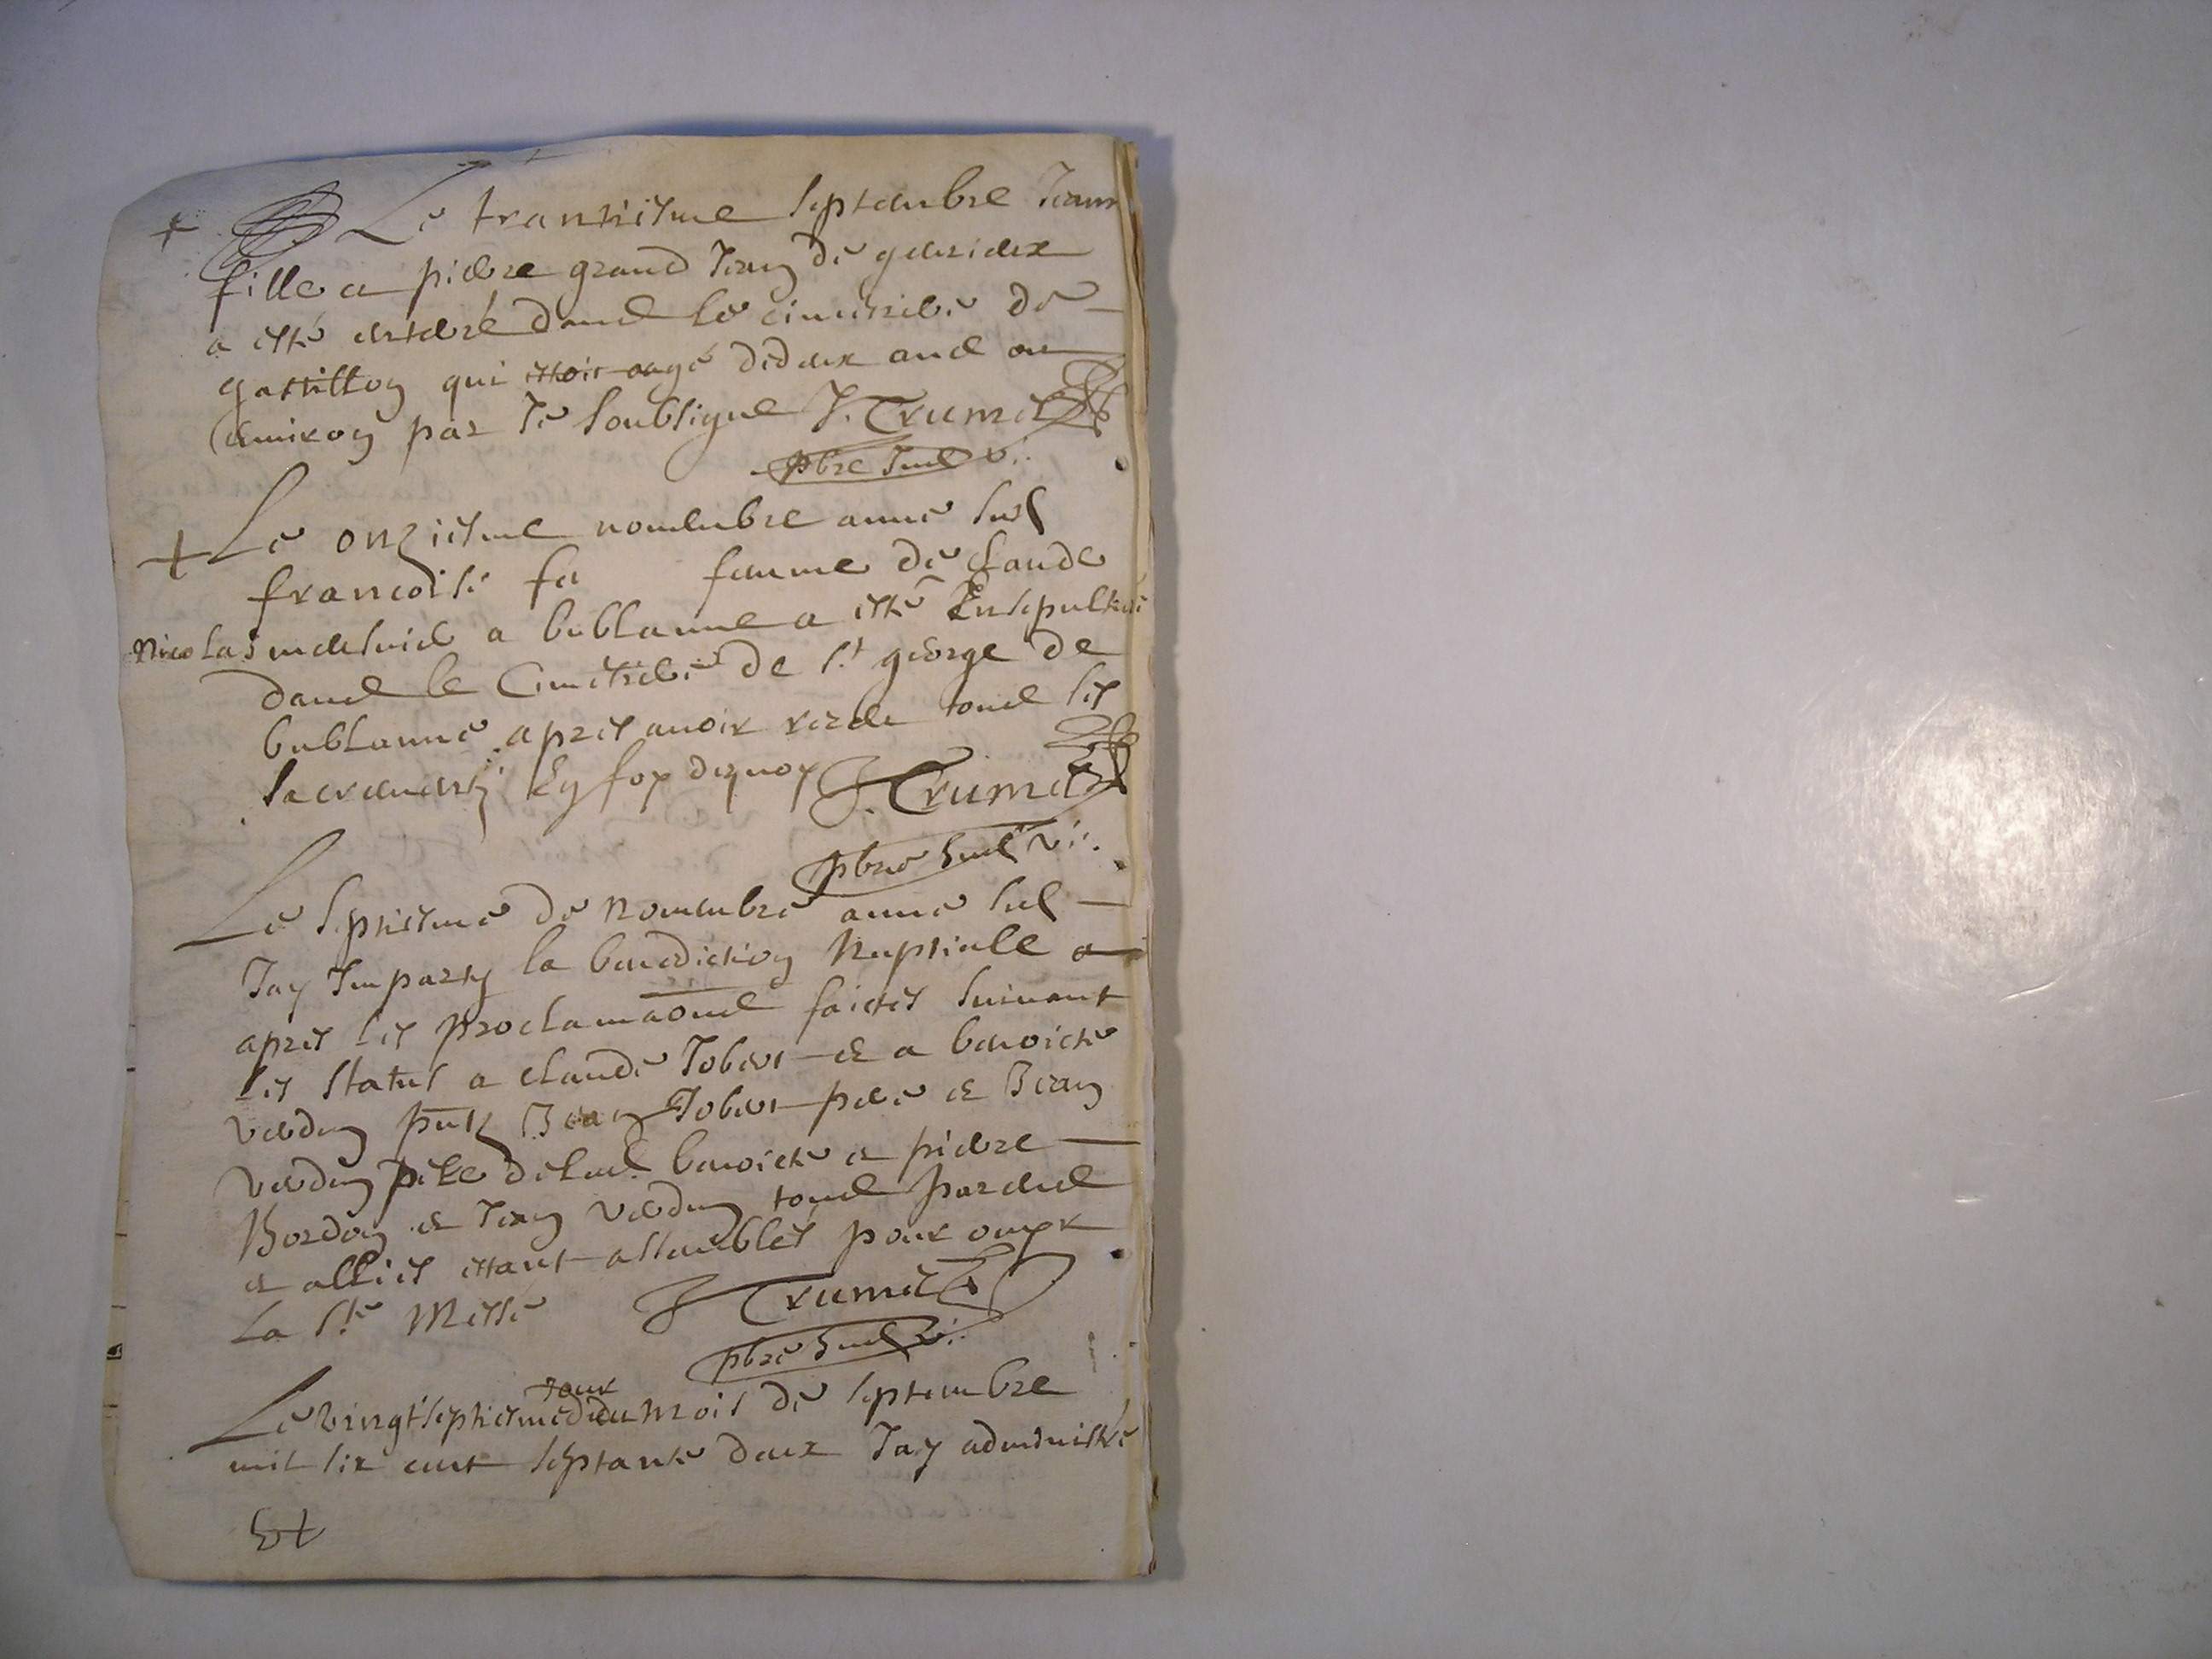 + Le trantiesme septembre Jeanne
fille a pierre grand Jean de
a esté enterré dans le cimetiere de
qui estoit aagé de deux ans ou
environ par Je soubsigné J. Trumel
pbre
+ Le onziesme novembre année sus
francoise fa femme de Claude
Nicolas a bublanne a esté Ensepulturé
dans le Cimetiere de St george de
bublanne apres avoir receu tous ses
sacrements En foy dequoy J. Trumel
pbre
Le septiesme de novembre année sus
Jay Imparty la benediction Nuptialle
apres les proclamaons faictes suivant
les statuts a claude Jobert et a benoicte
verdun pntz Jean Jobert pere et Jean
verdun pere de lad. benoicte et pierre
Bordon et Jean verdun tous parens
et alliés estant assemblés pour ouyr
La Ste Messe J Trumel
pbre
Le vingt septiesme jour du mois de septembre
mil six cent septante deux Jay administré